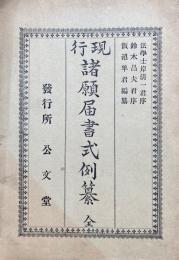 法學士岸清一君序
鈴木昌夫君序
飯道隼君編纂
現行
諸願届書式例纂 全
發行所 公文堂